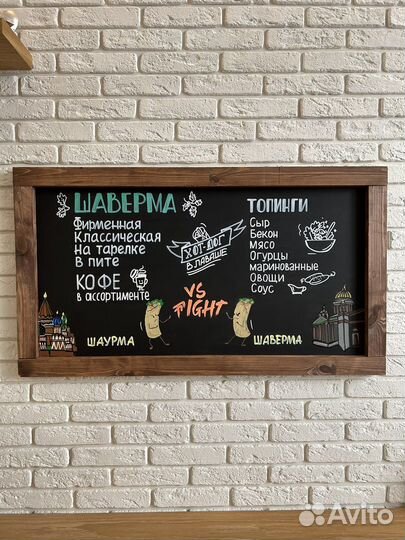 ШАВЕРМА
Фирменная
Классическая
на тарелке
в пите
КОФЕ
в ассортименте
ХОТ-ДОГ
В ЛАВАШЕ
ТОПИНГИ
Сыр
Бекон
Мясо
Огурцы
маринованные
Овощи
Соус
VS
FIGHT
ШАУРМА
ШАВЕРМА
Avito